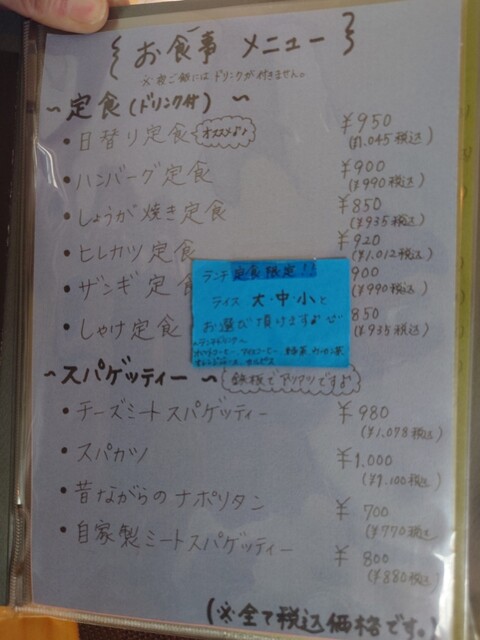 お食事 メニュー
※夜ご飯にはドリンクが付きません。
～定食(ドリンク付) ～
・日替り定食 オススメ♪♪ ¥950
(¥1.045税込)
・ハンバーグ定食 ¥900
(¥990税込)
・しょうが焼き定食 ¥850
(¥935税込)
・ヒレカツ定食 920
(¥1.012税込)
・ザンギ定食 900
(¥990税込)
・しゃけ定食 850
(¥935税込)
ランチ定食限定!!
ライス 大・中・小と
お選び頂けます♪
～スパゲッティー～ 鉄板でアツアツですよ
・チーズミートスパゲッティー ¥980
(¥1,078税込)
・スパカツ ¥1,000
(¥1,100税込)
・昔ながらのナポリタン ¥700
(¥770税込)
・自家製ミートスパゲッティー ¥800
(¥880税込)
(※全て税込価格です。)